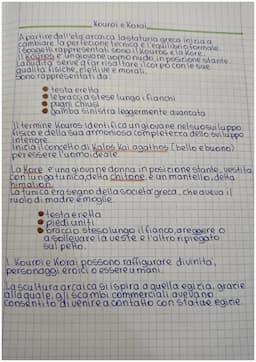 Kouroi e Korai
A partire dall'età arcaica la statuaria greca inizia a
cambiare la perfezione tecnica e l'equilibrio formale.
I soggetti rappresentati sono il Kouros e la Kore.
Il Kouros è un giovane uomo nudo, in posizione stante.
La nudità serve a far risaltare il corpo con le sue
qualità fisiche, elettive e morali.
Sono rappresentati da:
testa eretta
le braccia stese lungo i fianchi
pugni chiusi
gamba sinistra leggermente avanzata
Il termine Kouros identifica un giovane nel suo sviluppo
fisico e della sua armonioso completezza dello sviluppo
interiore.
Inizia il concetto di Kalos kai agathos (bello e buono)
per essere l'uomo ideale.
La Kore è una giovane donna in posizione stante, vestita
con lunga tunica, detta chitone, e un mantello, detto
himation.
La tunica era segno della società greca, che aveva il
ruolo di madre e moglie.
testa eretta
piedi uniti
braccio steso lungo il fianco, a reggere o
a sollevare la veste e l'altro ripiegato
sul petto.
I Kouroi e Korai possono raffigurare divinità,
personaggi eroici o essere umani.
La scultura arcaica si ispira a quella egizia, grazie
alla quale, gli scambi commerciali avevano
consentito di venire a contatto con statue egizie.